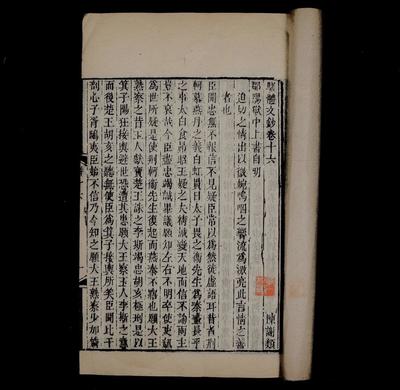 駢體文鈔卷十六
陳謝類
鄒陽獄中上書自明
迫切之情出以微婉嗚咽之響流爲激亮此言情之善
者也
臣聞忠無不報信不見疑臣常以爲然徒虛語耳昔者荊
軻慕燕丹之義白虹貫日太子畏之衞先生爲秦畫長平
之事太白食昴昭王疑之夫精誠變天地而信不諭兩主
豈不哀哉今臣盡忠竭誠畢議願知左右不明卒從吏訊
爲世所疑是使荊軻衞先生復起而燕秦不寤也願大王
熟察之昔玉人獻寶楚王誅之李斯竭忠胡亥極刑是以
箕子陽狂接輿避世恐遭此患願大王察玉人李斯之意
而後楚王胡亥之聽無使臣爲箕子接輿所笑臣聞比干
剖心子胥鴟夷臣始不信乃今知之願大王熟察少加憐